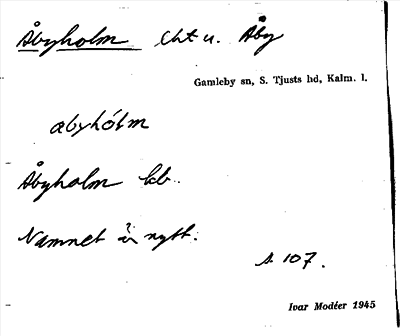 Åbyholm lht u. Åby
Gamleby sn, S. Tjusts hd, Kalm. l.
åbyhólm
Åbyholm kb.
Namnet är nytt.
s. 107.
Ivar Modéer 1945